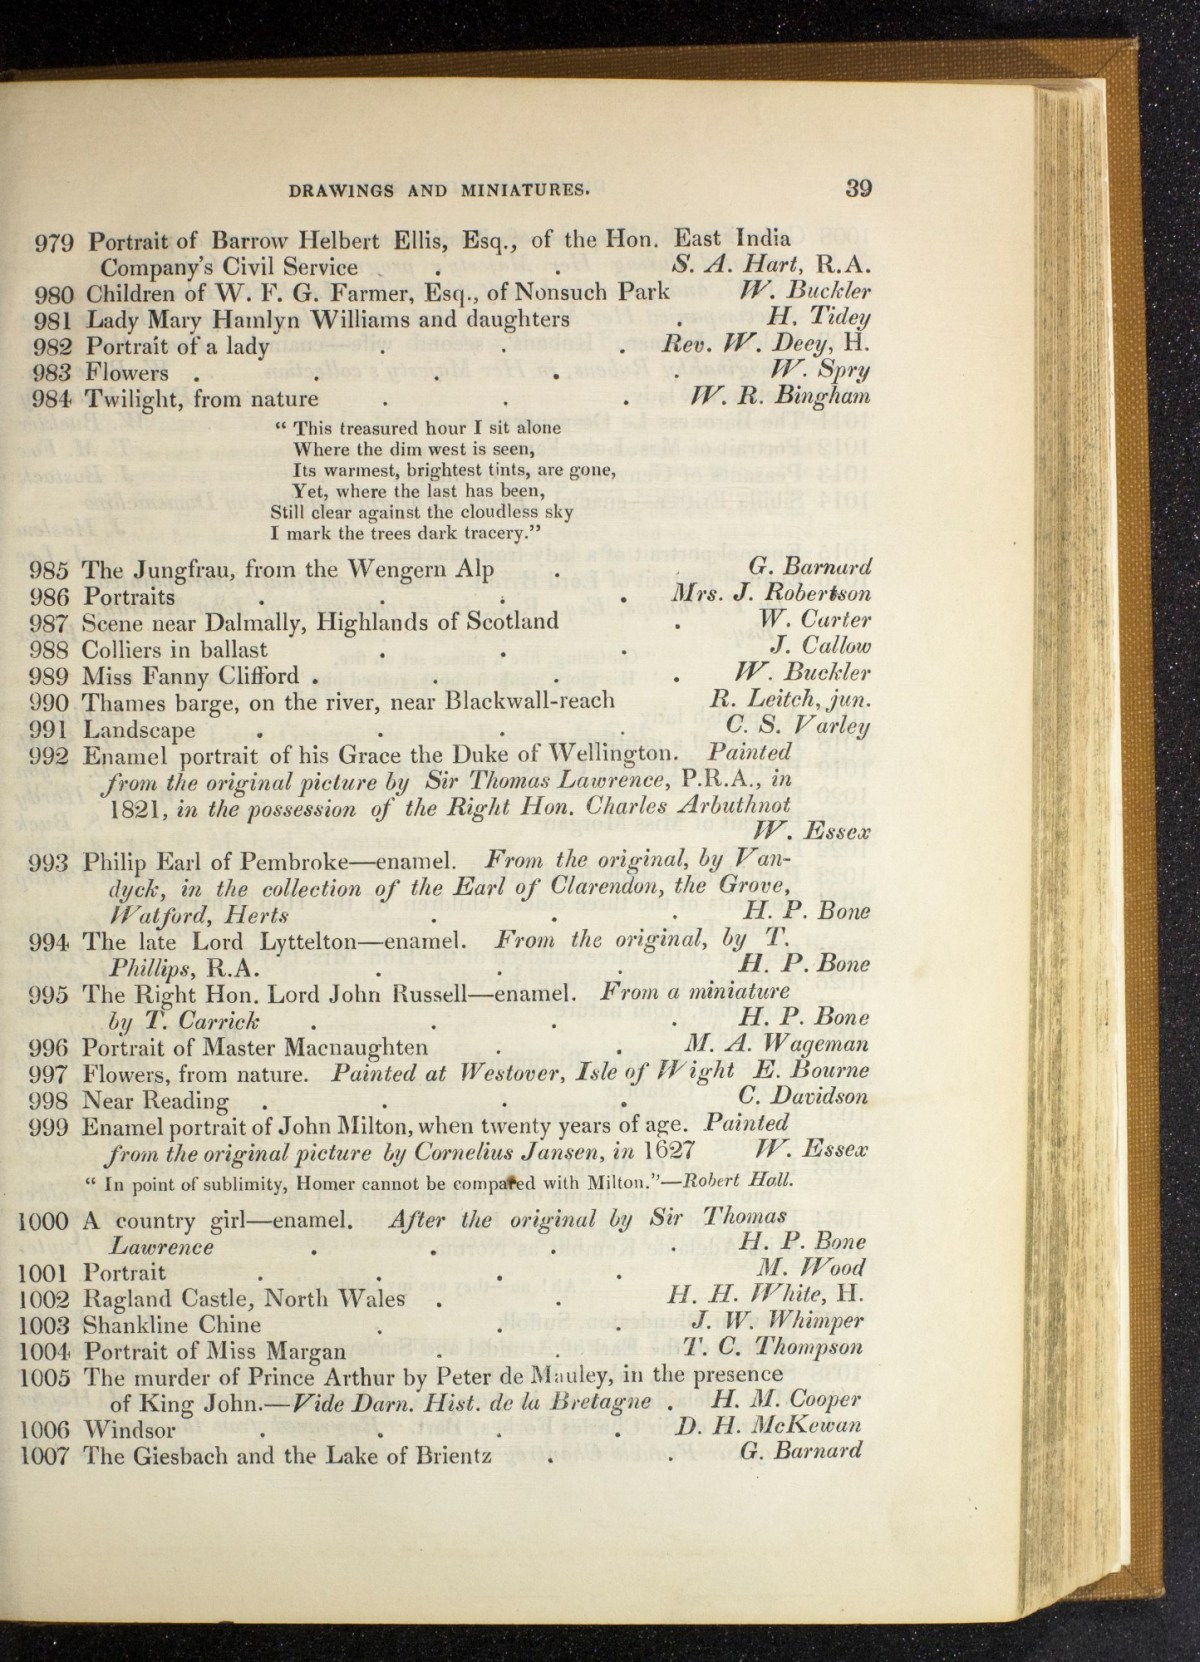 DRAWINGS AND MINIATURES. 39
979 Portrait of Barrow Helbert Ellis, Esq., of the Hon. East India
Company's Civil Service . . S. A. Hart, R.A.
980 Children of W. F. G. Farmer, Esq., of Nonsuch Park W. Buckler
981 Lady Mary Hamlyn Williams and daughters . H. Tidey
982 Portrait of a lady . . . Rev. W. Deey, H.
983 Flowers . . . . . W. Spry
984 Twilight, from nature . . . W. R. Bingham
“ This treasured hour I sit alone
Where the dim west is seen,
Its warmest, brightest tints, are gone,
Yet, where the last has been,
Still clear against the cloudless sky
I mark the trees dark tracery.”
985 The Jungfrau, from the Wengern Alp . . G. Barnard
986 Portraits . . . . Mrs. J. Robertson
987 Scene near Dalmally, Highlands of Scotland . W. Carter
988 Colliers in ballast . . . J. Callow
989 Miss Fanny Clifford . . . . W. Buckler
990 Thames barge, on the river, near Blackwall-reach R. Leitch, jun.
991 Landscape . . . . C. S. Varley
992 Enamel portrait of his Grace the Duke of Wellington. Painted
from the original picture by Sir Thomas Lawrence, P.R.A., in
1821, in the possession of the Right Hon. Charles Arbuthnot
W. Essex
993 Philip Earl of Pembroke—enamel. From the original, by Van-
dyck, in the collection of the Earl of Clarendon, the Grove,
Watford, Herts . . . H. P. Bone
994 The late Lord Lyttelton—enamel. From the original, by T.
Phillips, R.A. . . . H. P. Bone
995 The Right Hon. Lord John Russell—enamel. From a miniature
by T. Carrick . . . . H. P. Bone
996 Portrait of Master Macnaughten . . M. A. Wageman
997 Flowers, from nature. Painted at Westover, Isle of Wight E. Bourne
998 Near Reading . . . . C. Davidson
999 Enamel portrait of John Milton, when twenty years of age. Painted
from the original picture by Cornelius Jansen, in 1627 W. Essex
“ In point of sublimity, Homer cannot be compared with Milton.”—Robert Hall.
1000 A country girl—enamel. After the original by Sir Thomas
Lawrence . . . . H. P. Bone
1001 Portrait . . . . M. Wood
1002 Ragland Castle, North Wales . . H. H. White, H.
1003 Shankline Chine . . . J. W. Whimper
1004 Portrait of Miss Margan . . T. C. Thompson
1005 The murder of Prince Arthur by Peter de Mauley, in the presence
of King John.—Vide Darn. Hist. de la Bretagne . H. M. Cooper
1006 Windsor . . . . D. H. McKewan
1007 The Giesbach and the Lake of Brientz . . G. Barnard